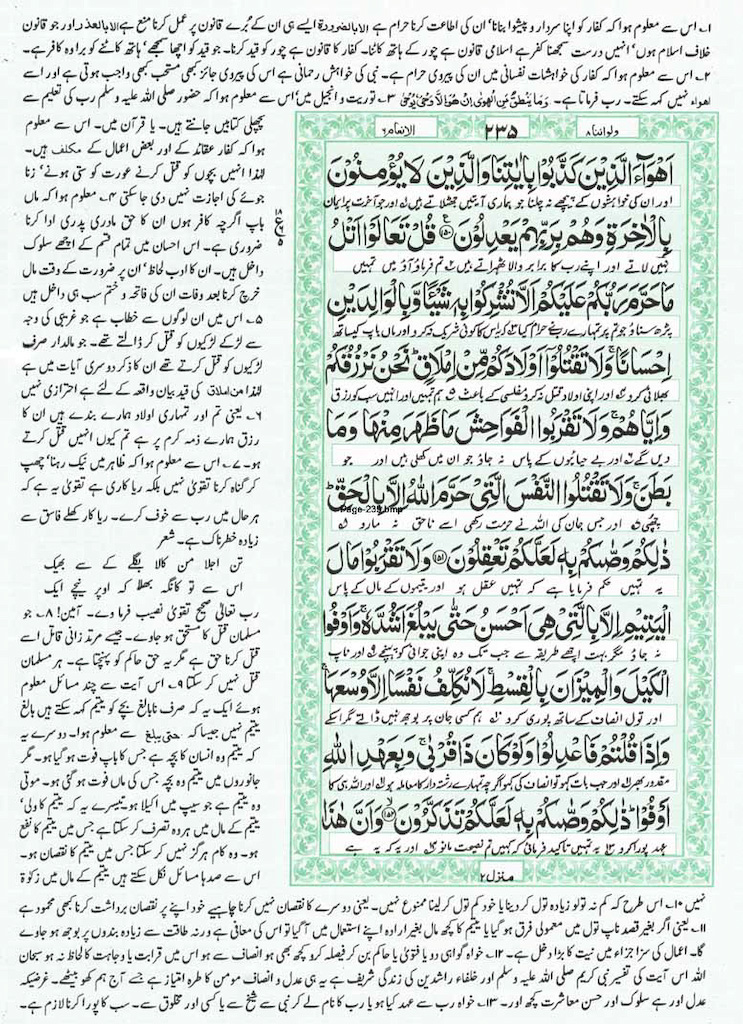 ۱۔ اس سے معلوم ہوا کہ کفار کو اپنا سردار و پیشوا بنانا' ان کی اطاعت کرنا حرام ہے الابالضرورۃ ایسے ہی ان کے بُرے قانون پر عمل کرنا منع ہے الابالعذر اور جو قانون
خلاف اسلام ہوں' انہیں درست سمجھنا کفر ہے اسلامی قانون ہے چور کے ہاتھ کاٹنا۔ کفار کا قانون ہے چور کو قید کرنا۔ جو قید کو اچھا سمجھے' ہاتھ کاٹنے کو برا وہ کافر ہے۔
۲۔ اس سے معلوم ہوا کہ کفار کی خواہشات نفسانی میں ان کی پیروی حرام ہے۔ نبی کی خواہش رحمانی ہے اس کی پیروی جائز بھی مستحب کبھی واجب ہوتی ہے اور اسے
اھواء نہیں کہہ سکتے۔ رب فرماتا ہے۔ وَمَا یَنْطِقُ عَنِ الْھَوٰی اِنْ ھُوَ اِلَّا وَحْیٌ یُّوْحٰی ۳۔ توریت و انجیل میں' اس سے معلوم ہوا کہ حضور صلی اللہ علیہ وسلم رب کی تعلیم سے
پچھلی کتابیں جانتے ہیں۔ یا قرآن میں۔ اس سے معلوم
ہوا کہ کفار عقائد کے اور بعض اعمال کے مکلف ہیں۔
لہٰذا انہیں بچوں کو قتل کرنے عورت کو ستی ہونے' زنا
جوئے کی اجازت نہیں دی جا سکتی ۴۔ معلوم ہوا کہ ماں
باپ اگرچہ کافر ہوں ان کا حق مادری پدری ادا کرنا
ضروری ہے۔ اس احسان میں تمام قسم کے اچھے سلوک
داخل ہیں۔ ان کا ادب لحاظ' ان پر ضرورت کے وقت مال
خرچ کرنا بعد وفات ان کی فاتحہ و ختم سب ہی داخل ہیں
۵۔ اس میں ان لوگوں سے خطاب ہے جو غریبی کی وجہ
سے لڑکے لڑکیوں کو قتل کر ڈالتے تھے۔ جو مالدار صرف
لڑکیوں کو قتل کرتے تھے ان کا ذکر دوسری آیات میں ہے
لہٰذا من املاق کی قید بیان واقعہ کے لئے ہے احترازی نہیں
۶۔ یعنی تم اور تمہاری اولاد ہمارے بندے ہیں ان کا
رزق ہمارے ذمہ کرم پر ہے تم کیوں انہیں قتل کرتے
ہو۔ ۷۔ اس سے معلوم ہوا کہ ظاہر میں نیک رہنا' چھپ
کر گناہ کرنا تقویٰ نہیں بلکہ ریا کاری ہے تقویٰ یہ ہے کہ
ہر حال میں رب سے خوف کرے۔ ریا کار کھلے فاسق سے
زیادہ خطرناک ہے۔ شعر
تن اجلا من کالا بگلے کے سے بھیک
اس سے تو کانگہ بھلا کہ اوپر نیچے ایک
رب تعالٰی صحیح تقویٰ نصیب فرما دے۔ آمین! ۸۔ جو
مسلمان قتل کا مستحق ہو جاوے۔ جیسے مرتد زانی قاتل اسے
قتل کرنا حق ہے مگر یہ حق حاکم کو پہنچتا ہے۔ ہر مسلمان
قتل نہیں کر سکتا ۹۔ اس آیت سے چند مسائل معلوم
ہوئے ایک یہ کہ صرف نابالغ بچے کو یتیم کہہ سکتے ہیں بالغ
یتیم نہیں جیسا کہ حتی یبلغ سے معلوم ہوا۔ دوسرے یہ
کہ یتیم وہ انسان کا بچہ ہے جس کا باپ فوت ہو گیا ہو۔ مگر
جانوروں میں یتیم وہ بچہ جس کی ماں فوت ہو گئی ہو۔ موتی
وہ یتیم ہے جو سیپ میں اکیلا ہو۔ تیسرے یہ کہ یتیم کا ولی'
یتیم کے مال میں ہر وہ تصرف کر سکتا ہے جس میں یتیم کا نفع
ہو۔ وہ کام ہرگز نہیں کر سکتا جس میں یتیم کا نقصان ہو۔
اس سے صدہا مسائل نکل سکتے ہیں یتیم کے مال میں زکوٰۃ
ولواننا ۸
۲۳۵
الانعام ۶
اَهْوَآءَ الَّذِيْنَ كَذَّبُوْا بِاٰيٰتِنَا وَالَّذِيْنَ لَا يُؤْمِنُوْنَ
اور ان کی خواہشوں کے پیچھے نہ چلنا جو ہماری آیتیں جھٹلاتے ہیں اور جو آخرت پر ایمان
بِالْاٰخِرَةِ وَهُمْ بِرَبِّهِمْ يَعْدِلُوْنَ ۱۵۰ قُلْ تَعَالَوْا اَتْلُ
نہیں لاتے اور اپنے رب کا برابر والا ٹھہراتے ہیں تم فرماؤ آؤ میں تمہیں
مَا حَرَّمَ رَبُّكُمْ عَلَيْكُمْ اَلَّا تُشْرِكُوْا بِهٖ شَيْئًا وَّبِالْوَالِدَيْنِ
پڑھ سناؤں جو تم پر تمہارے رب نے حرام کیا کہ اس کا کوئی شریک نہ کرو اور ماں باپ کیساتھ
اِحْسَانًا وَلَا تَقْتُلُوْا اَوْلَادَكُمْ مِّنْ اِمْلَاقٍ نَحْنُ نَرْزُقُكُمْ
بھلائی کرو اور اپنی اولاد قتل نہ کرو مفلسی کے باعث ہم تمہیں اور انہیں سب کو رزق
وَاِيَّاهُمْ وَلَا تَقْرَبُوا الْفَوَاحِشَ مَا ظَهَرَ مِنْهَا وَمَا
دیں گے اور بے حیائیوں کے پاس نہ جاؤ جو ان میں کھلی ہیں اور جو
بَطَنَ وَلَا تَقْتُلُوا النَّفْسَ الَّتِيْ حَرَّمَ اللّٰهُ اِلَّا بِالْحَقِّ
Page-235.bmp
چھپی اور جس جان کی اللہ نے حرمت رکھی اسے ناحق نہ مارو
ذٰلِكُمْ وَصّٰىكُمْ بِهٖ لَعَلَّكُمْ تَعْقِلُوْنَ ۱۵۱ وَلَا تَقْرَبُوْا مَالَ
یہ تمہیں حکم فرمایا ہے کہ تمہیں عقل ہو اور یتیموں کے مال کے پاس
الْيَتِيْمِ اِلَّا بِالَّتِيْ هِيَ اَحْسَنُ حَتّٰى يَبْلُغَ اَشُدَّهٗ وَاَوْفُوا
نہ جاؤ مگر بہت اچھے طریقہ سے جب تک وہ اپنی جوانی کو پہنچے اور ناپ
الْكَيْلَ وَالْمِيْزَانَ بِالْقِسْطِ لَا نُكَلِّفُ نَفْسًا اِلَّا وُسْعَهَا
اور تول انصاف کے ساتھ پوری کرو ہم کسی جان پر بوجھ نہیں ڈالتے مگر اسکے
وَاِذَا قُلْتُمْ فَاعْدِلُوْا وَلَوْ كَانَ ذَا قُرْبٰى وَبِعَهْدِ اللّٰهِ
مقدور بھر اور جب بات کہو تو انصاف کی کہو اگرچہ تمہارے رشتہ دار کا معاملہ ہو اور اللہ ہی کا
اَوْفُوْا ذٰلِكُمْ وَصّٰىكُمْ بِهٖ لَعَلَّكُمْ تَذَكَّرُوْنَ ۱۵۲ وَاَنَّ هٰذَا
عہد پورا کرو یہ تمہیں تاکید فرمائی کہ کہیں تم نصیحت مانو اور یہ کہ یہ ہے
منزل ۲
نہیں ۱۰۔ اس طرح کہ کم نہ تولو زیادہ تول کر دینا یا خود کم تول کر لینا ممنوع نہیں۔ یعنی دوسرے کا نقصان نہیں کرنا چاہیے خود اپنے پر نقصان برداشت کرنا بھی محمود ہے
۱۱۔ یعنی اگر بغیر قصد ناپ تول میں معمولی فرق ہو گیا یا یتیم کا کچھ مال بغیر ارادہ اپنے استعمال میں آ گیا تو اس کی معافی ہے ورنہ طاقت سے زیادہ بندوں پر بوجھ ہو جاوے
گا۔ اعمال کی سزا جزاء میں نیت کا بڑا دخل ہے۔ ۱۲۔ خواہ گواہی دو یا فتویٰ یا حاکم بن کر فیصلہ کرو کچھ بھی ہو انصاف سے ہو اس میں قرابت یا وجاہت کا لحاظ نہ ہو سبحان
اللہ اس آیت کی تفسیر نبی کریم صلی اللہ علیہ وسلم اور خلفاء راشدین کی زندگی شریف ہے یہ ہی عدل و انصاف مومن کا طرہ امتیاز ہے جسے آج ہم کھو بیٹھے۔ غرضیکہ
عدل اور ہے سلوک اور حسن معاشرت کچھ اور۔ ۱۳۔ خواہ رب سے عہد کیا ہو یا رب کا نام لے کر نبی سے شیخ سے یا کسی اور مخلوق سے۔ سب کا پورا کرنا لازم ہے۔